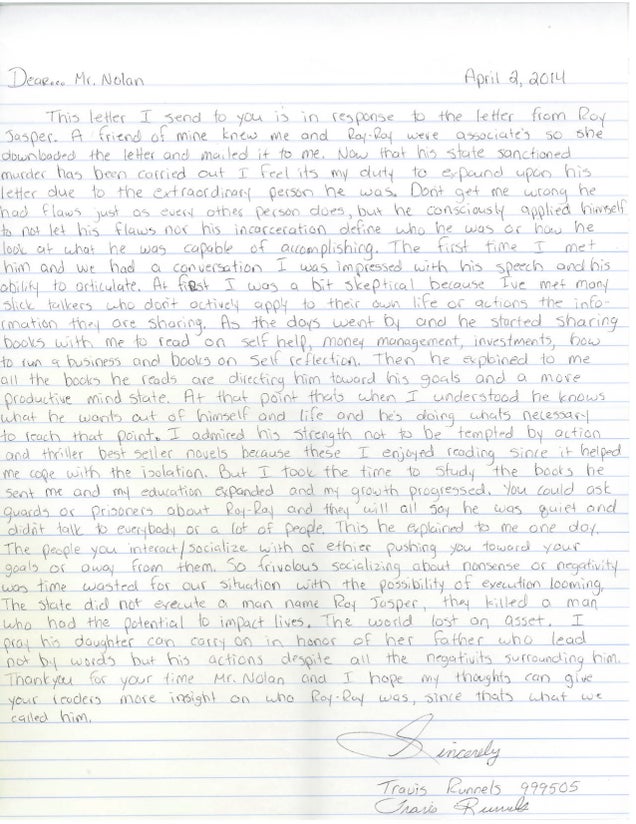 Dear... Mr. Nolan
April 2, 2014
This letter I send to you is in response to the letter from Ray
Jasper. A friend of mine knew me and Ray-Ray were associate's so she
downloaded the letter and mailed it to me. Now that his state sanctioned
murder has been carried out I feel its my duty to expound upon his
letter due to the extraordinary person he was. Dont get me wrong he
had flaws just as every other person does, but he consciously applied himself
to not let his flaws nor his incarceration define who he was or how he
look at what he was capable of accomplishing. The first time I met
him and we had a conversation I was impressed with his speech and his
ability to articulate. At first I was a bit skeptical because I've met many
slick talkers who don't actively apply to their own life or actions the info-
rmation they are sharing. As the days went by and he started sharing
books with me to read on self help, money management, investments, how
to run a business and books on self reflection. Then he explained to me
all the books he reads are directing him toward his goals and a more
productive mind state. At that point thats when I understood he knows
what he wants out of himself and life and he's doing whats necessary
to reach that point. I admired his strength not to be tempted by action
and thriller best seller novels because these I enjoyed reading since it helped
me cope with the isolation. But I took the time to study the books he
sent me and my education expanded and my growth progressed. You could ask
guards or prisoners about Ray-Ray and they will all say he was quiet and
didn't talk to everybody or a lot of people. This he explained to me one day.
The people you interact/socialize with or ethier pushing you toward your
goals or away from them. So frivolous socializing about nonsense or negativity
was time wasted for our situation with the possibility of execution looming.
The state did not execute a man name Ray Jasper, they killed a man
who had the potential to impact lives. The world lost an asset. I
pray his daughter can carry on in honor of her father who lead
not by words but his actions despite all the negativity surrounding him.
Thankyou for your time Mr. Nolan and I hope my thoughts can give
your readers more insight on who Ray-Ray was, since thats what we
called him.
Sincerely
Travis Runnels 999505
Travis Runnels